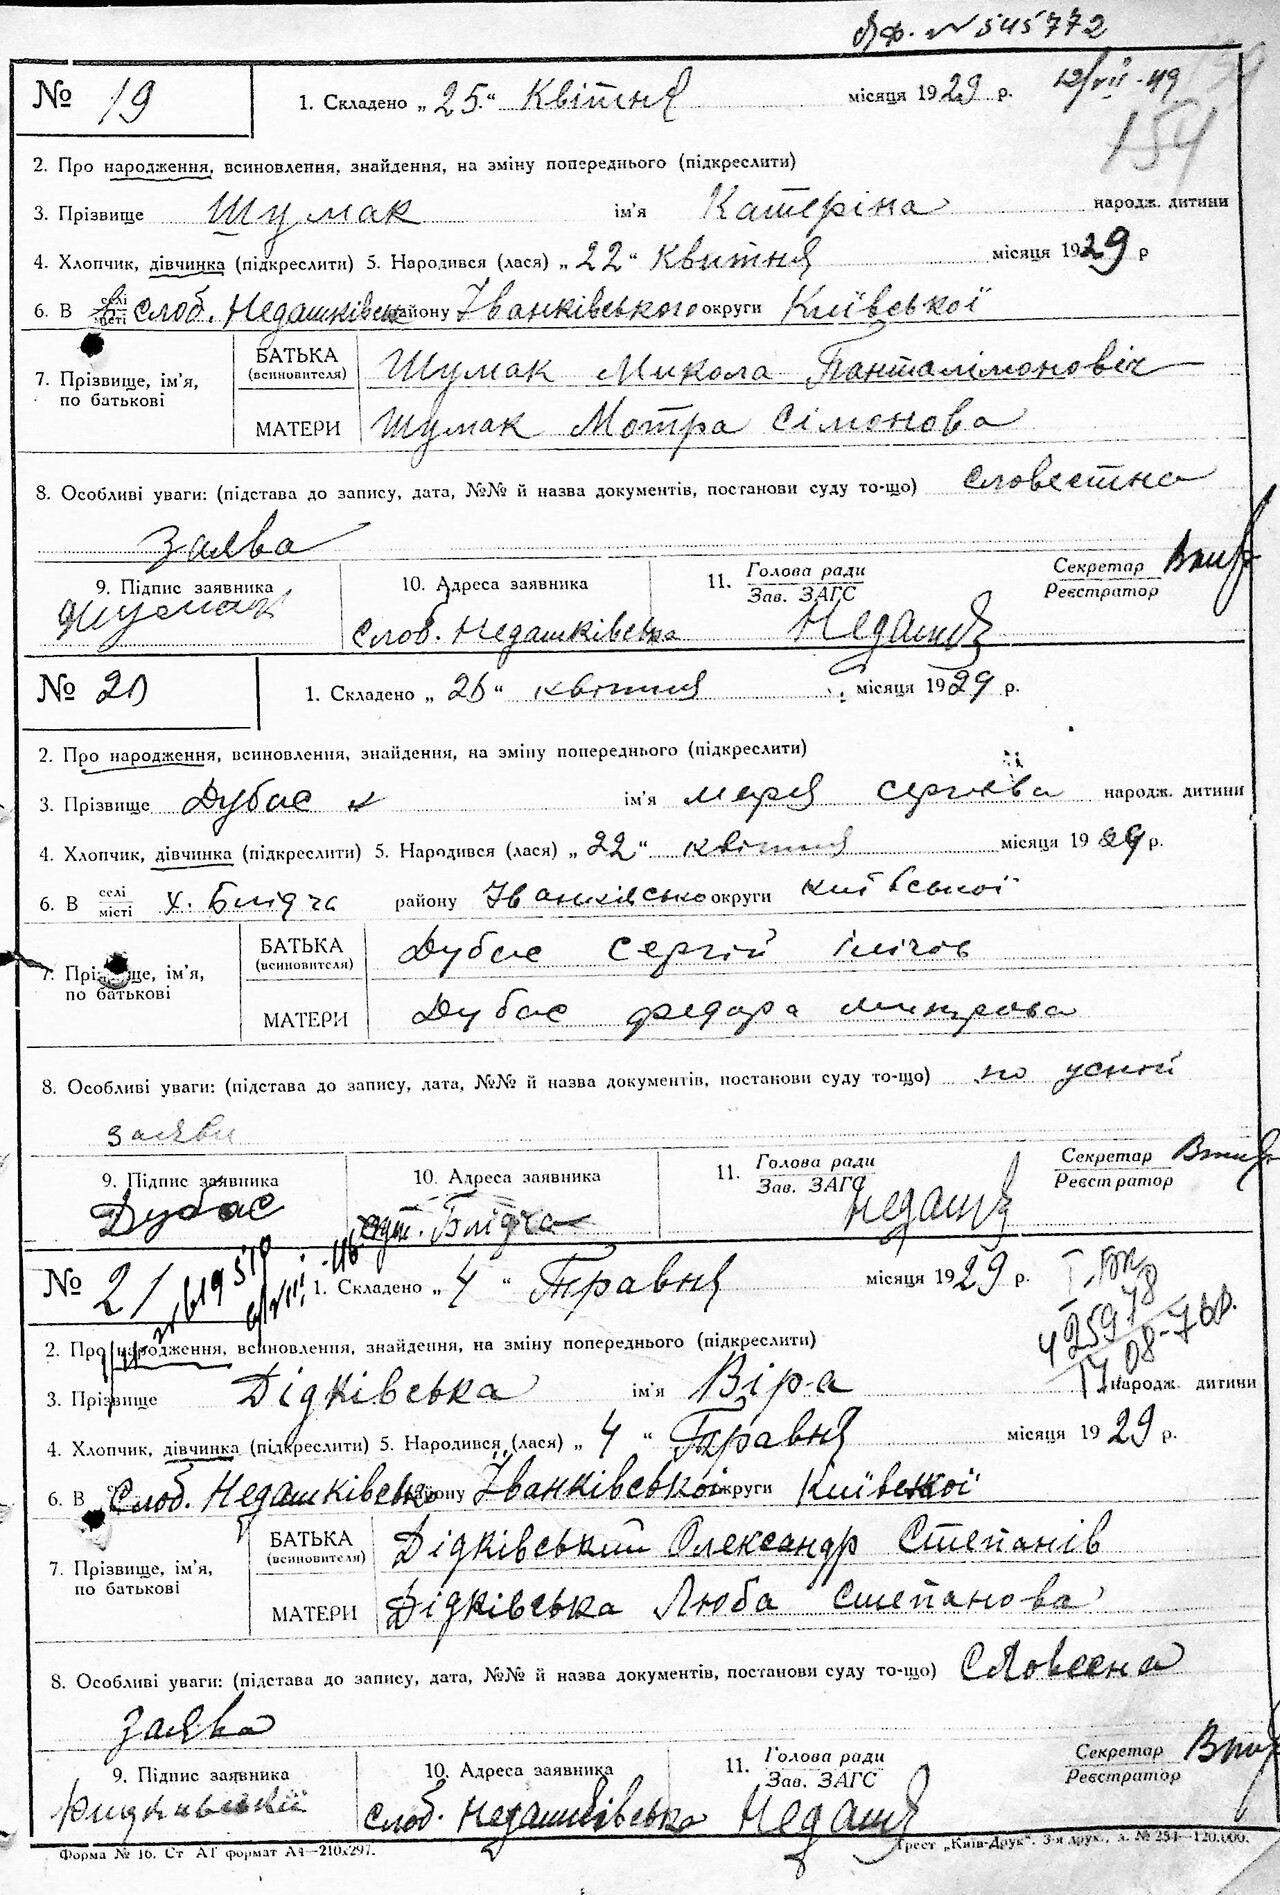 № 545772
№ 19 1. Складено „25“ Квітня місяця 1929 р. 12/VII-49
154
2. Про народження, всиновлення, знайдення, на зміну попереднього (підкреслити)
3. Прізвище Шумак ім'я Катеріна народж. дитини
4. Хлопчик, дівчинка (підкреслити) 5. Народився (лася) „22“ Квитня місяця 1929 р
6. В селі місті Слоб. Недашківськ району Іванківського округи Київської
7. Прізвище, ім'я, по батькові
БАТЬКА (всиновителя) Шумак Микола Панталімоновіч
МАТЕРИ Шумак Мотра Сімонова
8. Особливі уваги: (підстава до запису, дата, №№ й назва документів, постанови суду то-що) словестна
заява
9. Підпис заявника 10. Адреса заявника 11. Голова ради Зав. ЗАГС Секретар Реєстратор
Шумак Слоб. Недашківська Недаш
№ 20 1. Складено „26“ квітня місяця 1929 р.
2. Про народження, всиновлення, знайдення, на зміну попереднього (підкреслити)
3. Прізвище Дубас ім'я марія сергієва народж. дитини
4. Хлопчик, дівчинка (підкреслити) 5. Народився (лася) „22“ квітня місяця 1929 р.
6. В селі місті х. Блідча району Іванківсько округи київської
7. Прізвище, ім'я, по батькові
БАТЬКА (всиновителя) Дубас Сергій ілічов
МАТЕРИ Дубас федора
8. Особливі уваги: (підстава до запису, дата, №№ й назва документів, постанови суду то-що) по усній
заяви
9. Підпис заявника 10. Адреса заявника 11. Голова ради Зав. ЗАГС Секретар Реєстратор
Дубас Блідча Недаш
№ 21 1. Складено „4“ Травня місяця 1929 р.
2. Про народження, всиновлення, знайдення, на зміну попереднього (підкреслити)
3. Прізвище Дідківська ім'я Віра народж. дитини
4. Хлопчик, дівчинка (підкреслити) 5. Народився (лася) „4“ Травня місяця 1929 р.
6. В Слоб. Недашківсько району Іванківської округи Київської
7. Прізвище, ім'я, по батькові
БАТЬКА (всиновителя) Дідківський Олександр Степанів
МАТЕРИ Дідківська Люба Степанова
8. Особливі уваги: (підстава до запису, дата, №№ й назва документів, постанови суду то-що) Словесна
заява
9. Підпис заявника 10. Адреса заявника 11. Голова ради Зав. ЗАГС Секретар Реєстратор
Слоб. Недашківська Недаш
Форма № 16. Ст АТ формат А4—210x297. Трест „Київ-Друк“. 3-я друк., з. № 254—120.000.